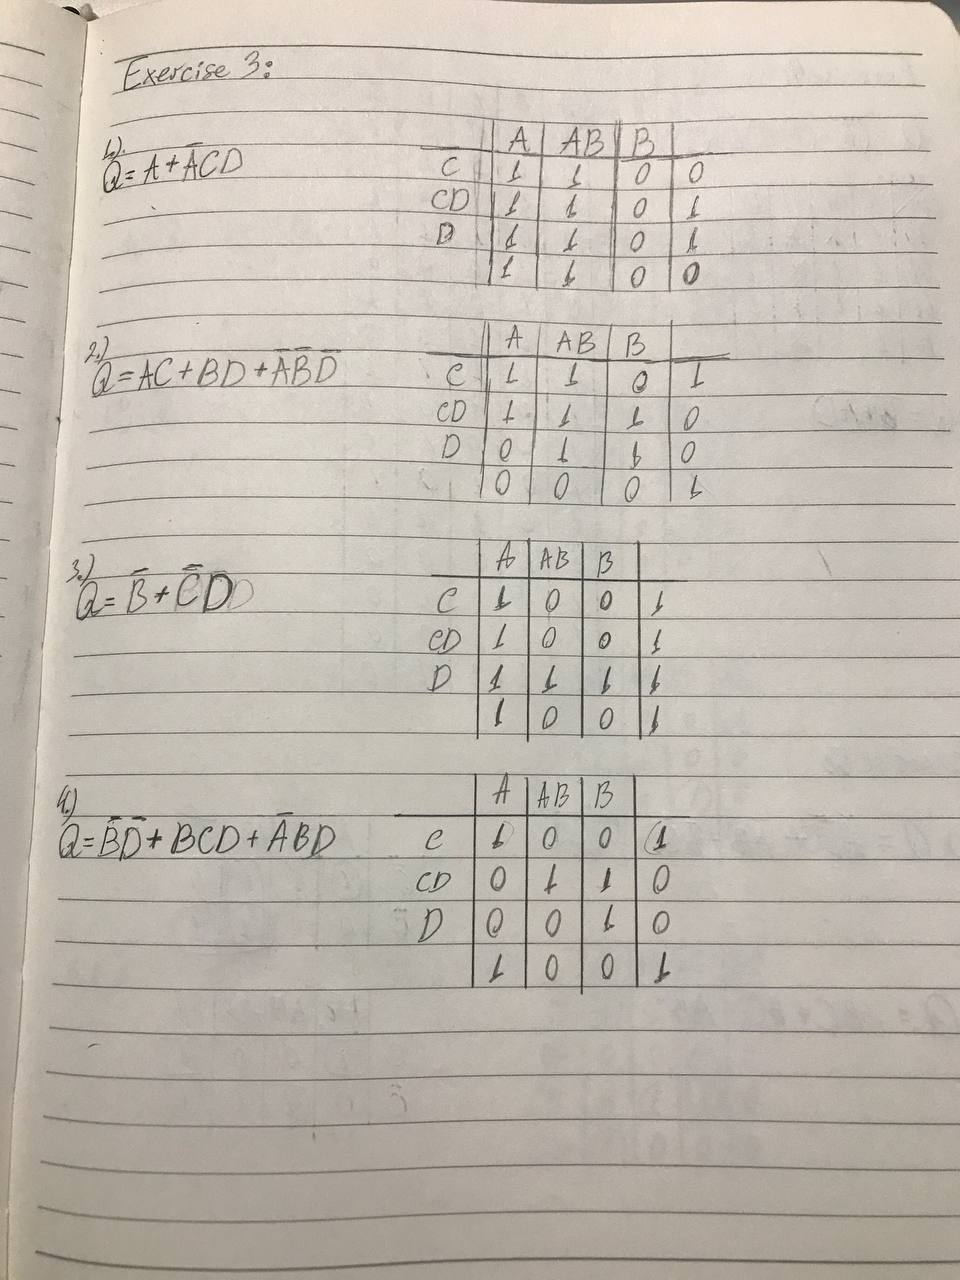 Exercise 3:
1.)
Q = A + A̅CD
A AB B
C 1 1 0 0
CD 1 1 0 1
D 1 1 0 1
1 1 0 0
2.)
Q = AC + BD + A̅B̅D̅
A AB B
C 1 1 0 1
CD 1 1 1 0
D 0 1 1 0
0 0 0 1
3.)
Q = B̅ + C̅D
A AB B
C 1 0 0 1
CD 1 0 0 1
D 1 1 1 1
1 0 0 1
4.)
Q = B̅D̅ + BCD + A̅BD
A AB B
C 1 0 0 1
CD 0 1 1 0
D 0 0 1 0
1 0 0 1